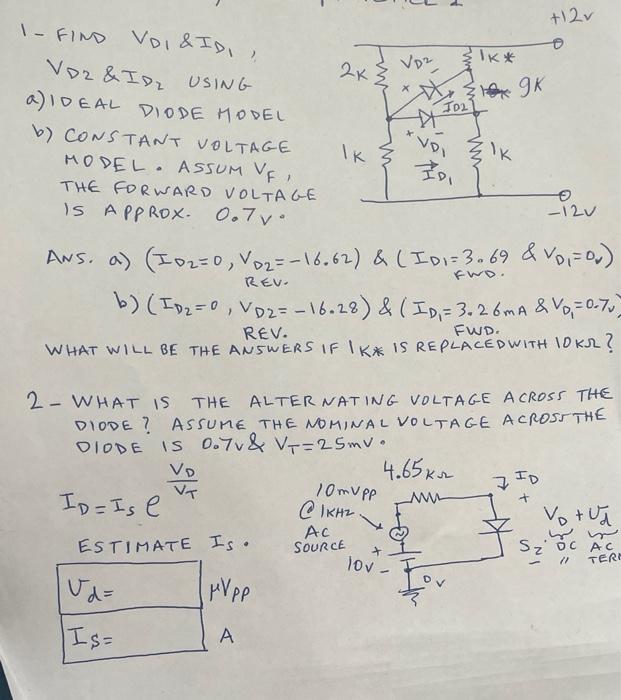 1- FIND VD1 & ID1,
VD2 & ID2 USING
a) IDEAL DIODE MODEL
b) CONSTANT VOLTAGE
MODEL. ASSUM VF,
THE FORWARD VOLTAGE
IS APPROX. 0.7V.
+12V
2K
VD2
-
1K*
+
ID2
9K
1K
+ VD1 -
ID1
1K
-12V
ANS. a) (ID2=0, VD2=-16.62) & (ID1=3.69 & VD1=0V)
REV. FWD.
b) (ID2=0, VD2=-16.28) & (ID1=3.26mA & VD1=0.7V)
REV. FWD.
WHAT WILL BE THE ANSWERS IF 1K* IS REPLACED WITH 10KΩ?
2- WHAT IS THE ALTERNATING VOLTAGE ACROSS THE
DIODE? ASSUME THE NOMINAL VOLTAGE ACROSS THE
DIODE IS 0.7V & VT=25mV.
ID = IS e VD/VT
ESTIMATE IS.
Vd= μVPP
IS= A
4.65KΩ
ID
10mVPP
@1KHZ
AC
SOURCE
+
10V -
0V
+
VD + Vd
DC AC
TERM